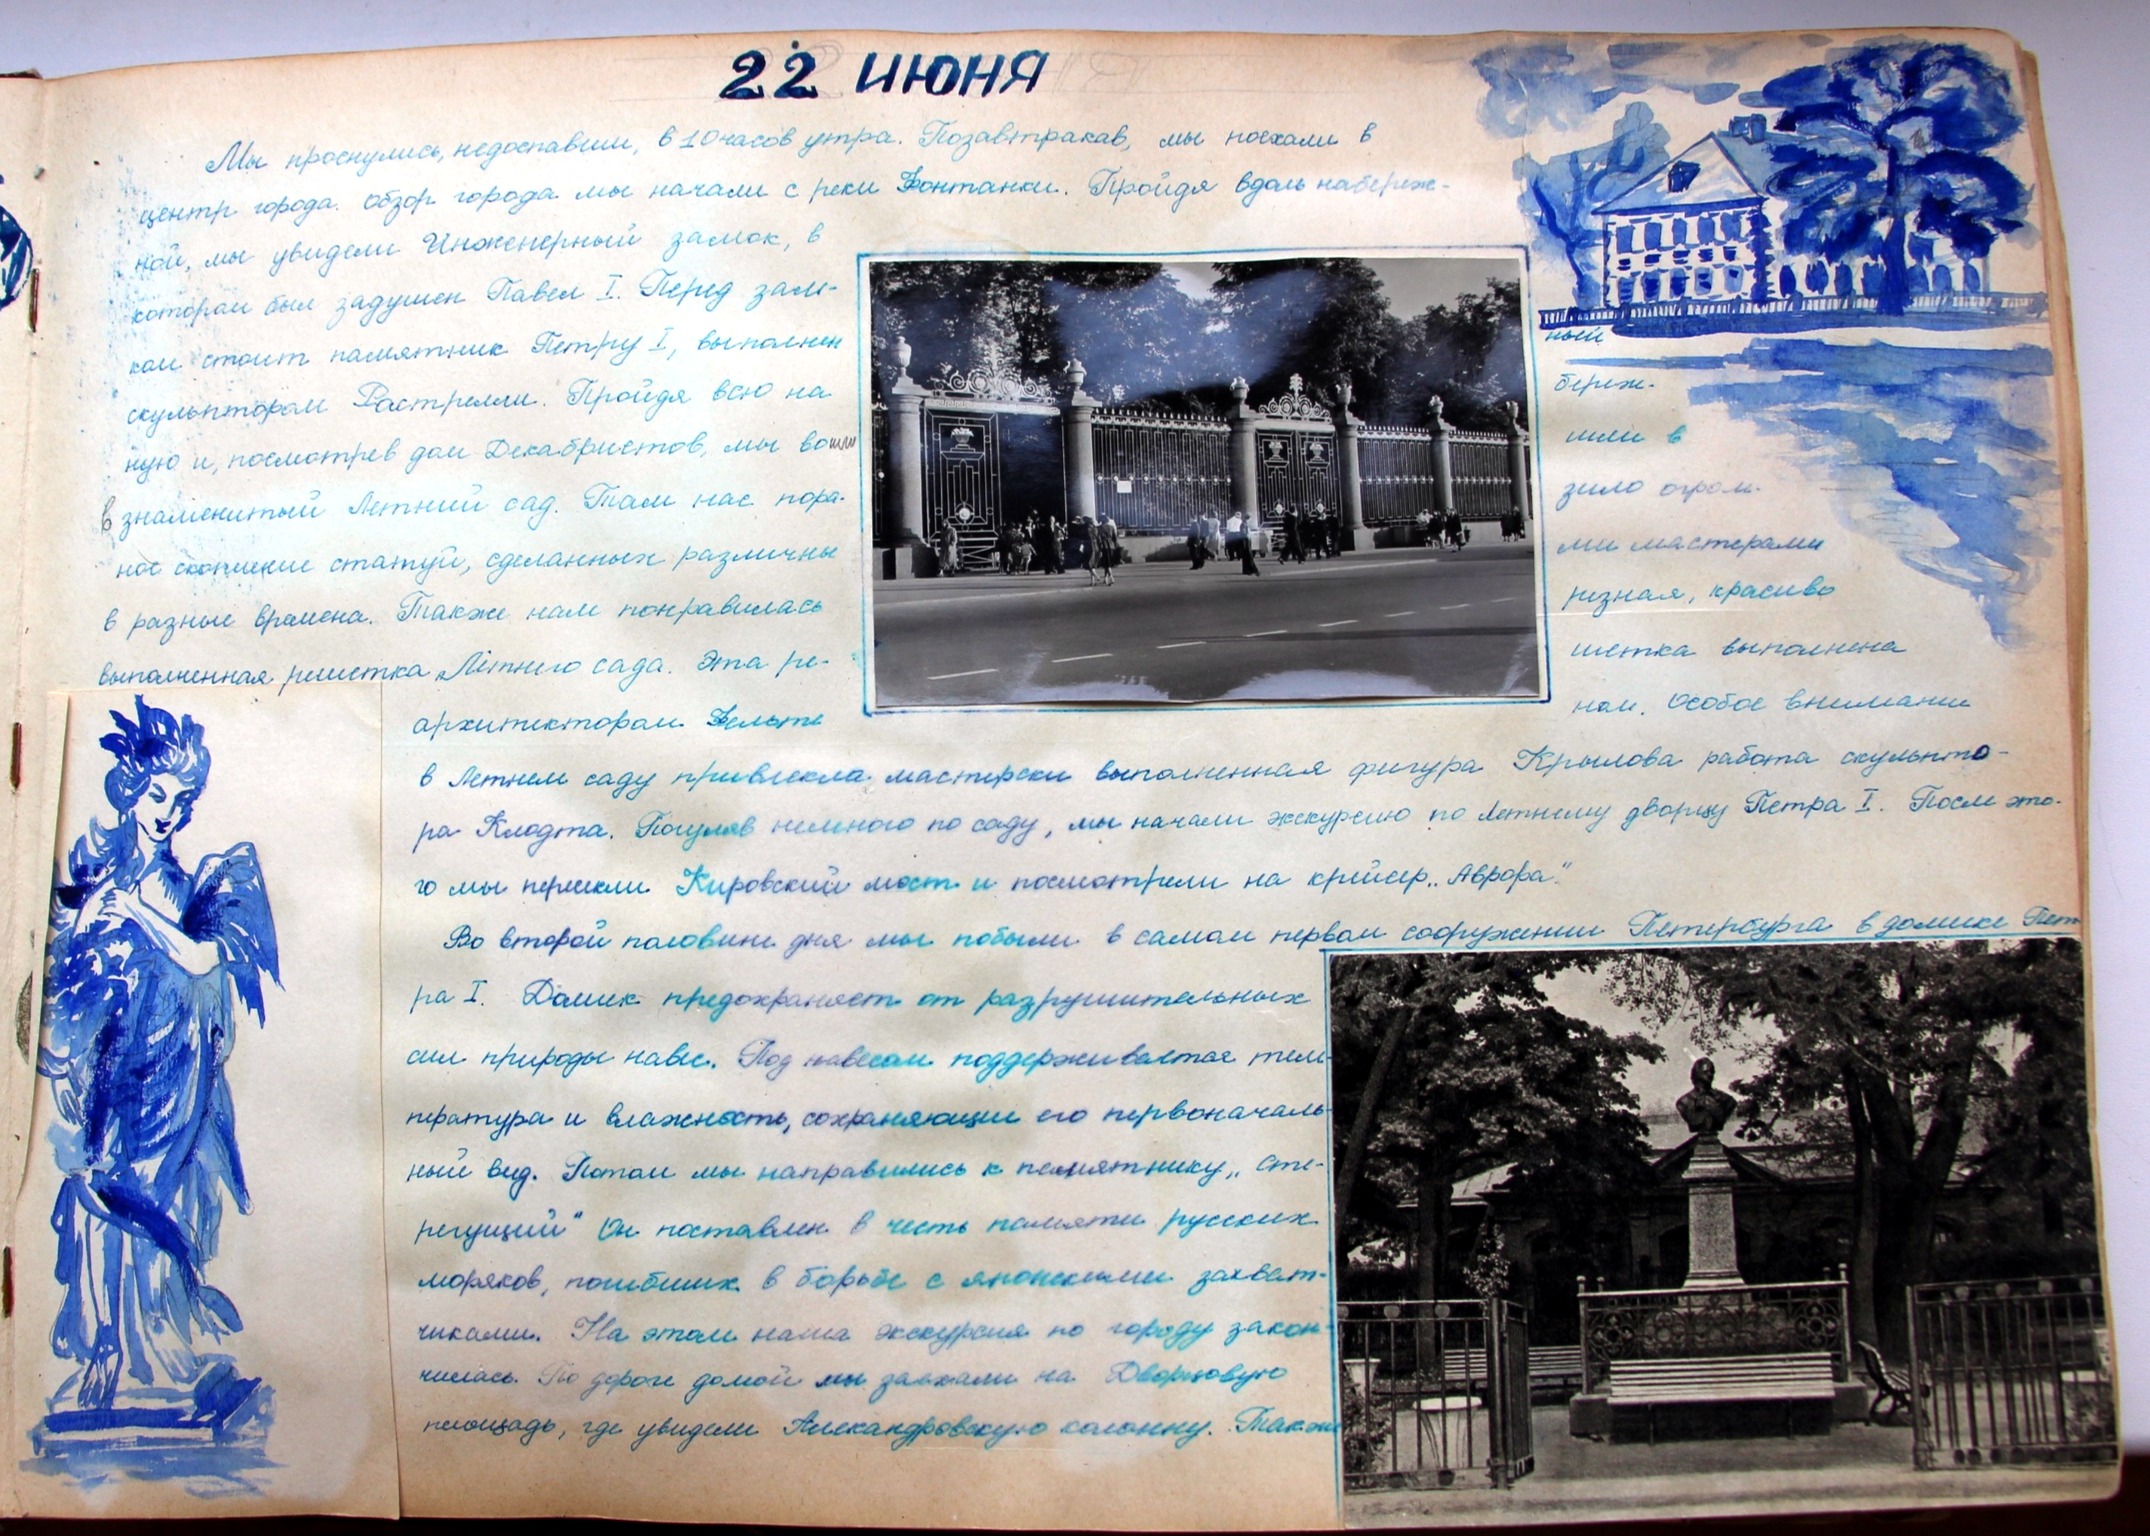 22 июня
Мы проснулись, недоспавши, в 10 часов утра. Позавтракав, мы поехали в
центр города. Обзор города мы начали с реки Фонтанки. Пройдя вдоль набереж-
ной, мы увидели Инженерный замок, в
котором был задушен Павел I. Перед зам-
ный
ком стоит памятник Петру I, выполнен
береж-
скульптором Растрелли. Пройдя всю на
шли в
ную и, посмотрев дом Декабристов, мы вошли
в знаменитый Летний сад. Там нас пора-
зило огром-
ное скопление статуй, сделанных различны
ми мастерами
в разные времена. Также нам понравилась
резная, красиво
выполненная решетка Летнего сада. Эта ре-
шетка выполнена
архитектором Фельте
ном. Особое внимание
в Летнем саду привлекла мастерски выполненная фигура Крылова работа скульпто-
ра Клодта. Погуляв немного по саду, мы начали экскурсию по Летнему дворцу Петра I. После это-
го мы пересекли Кировский мост и посмотрели на крейсер „Аврора".
Во второй половине дня мы побыли в самом первом сооружении Петербурга в домике Пет
ра I. Домик предохраняет от разрушительных
сил природы навес. Под навесом поддерживается тем-
пература и влажность, сохраняющие его первоначаль-
ный вид. Потом мы направились к памятнику „Сте-
регущий" Он поставлен в честь памяти русских
моряков, погибших в борьбе с японскими захват-
чиками. На этом наша экскурсия по городу закон-
чилась. По дороге домой мы заехали на Дворцовую
площадь, где увидели Александровскую колонну. Также